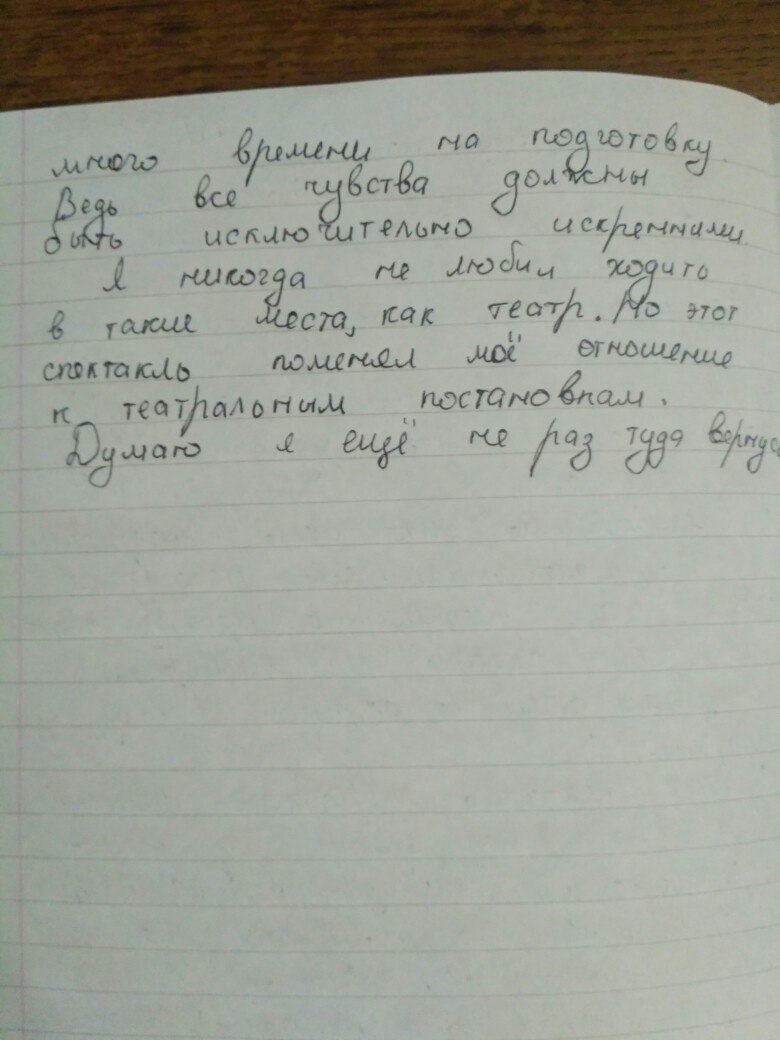 много времени на подготовку
Ведь все чувства должны
быть исключительно искренними
Я никогда не любил ходить
в такие места, как театр. Но этот
спектакль поменял моё отношение
к театральным постановкам.
Думаю я ещё не раз туда